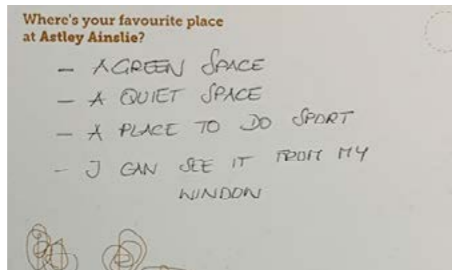 Where's your favourite place
at Astley Ainslie?
- A GREEN SPACE
- A QUIET SPACE
- A PLACE TO DO SPORT
- I CAN SEE IT FROM MY
WINDOW